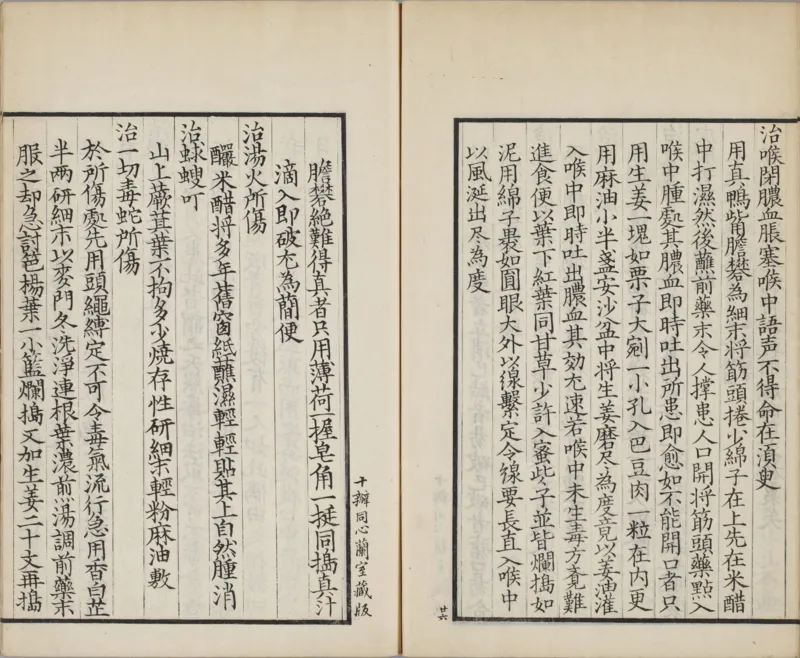 治喉閉膿血脹塞喉中語声不得命在湏臾
用真鴨觜膽礬為細末将筋頭捲少綿子在上先在米醋
中打濕然後蘸前藥末令人撑患人口開将筋頭藥點入
喉中腫處其膿血即時吐出所患即愈如不能開口者只
用生姜一塊如栗子大剜一小孔入巴豆肉一粒在内更
用麻油小半盞安沙盆中将生姜磨尽為度竟以姜油灌
入喉中即時吐出膿血其効尤速若喉中未生毒方竟難
進食便以葉下紅葉同甘草少許入蜜些子並皆爛搗如
泥用綿子褁如圓眼大外以線繫定令線要長直入喉中
以風涎出尽為度
廿六
膽礬絶難得真者只用薄荷一握皂角一挺同搗真汁
滴入即破尤為簡便
治湯火所傷
釅米醋将多年舊窗紙蘸濕輕輕貼其上自然腫消
治蛷螋叮
山上蕨萁葉不拘多少燒存性研細末輕粉麻油敷
治一切毒蛇所傷
於所傷處先用頭繩縛定不可令毒氣流行急用香白芷
半两研細末以麥門冬洗淨連根葉濃煎湯調前藥末
服之却急討琶楊葉一小籃爛搗又加生姜二十文再搗
十瓣同心蘭室藏版